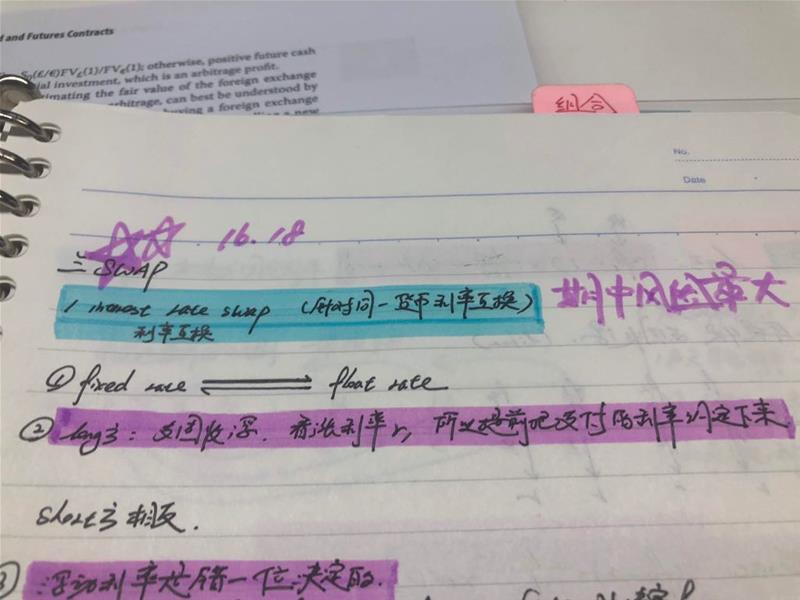 d and Futures Contracts
S₀(£/€)FV£(1)/FV€(1); otherwise, positive future cash
ial investment, which is an arbitrage profit.
timating the fair value of the foreign exchange
rbitrage, can best be understood by
uying a foreign exchange
a new
组合
No.
Date
16.18
三 SWAP
1 interest rate swap (同一货币利率互换)
利率互换
期中风险最大
① fixed rate ⇌ float rate
② long方: 支固收浮. 看涨利率r, 所以提前把支付的利率约定下来
short方相反.
浮动利率是错一位决定的.